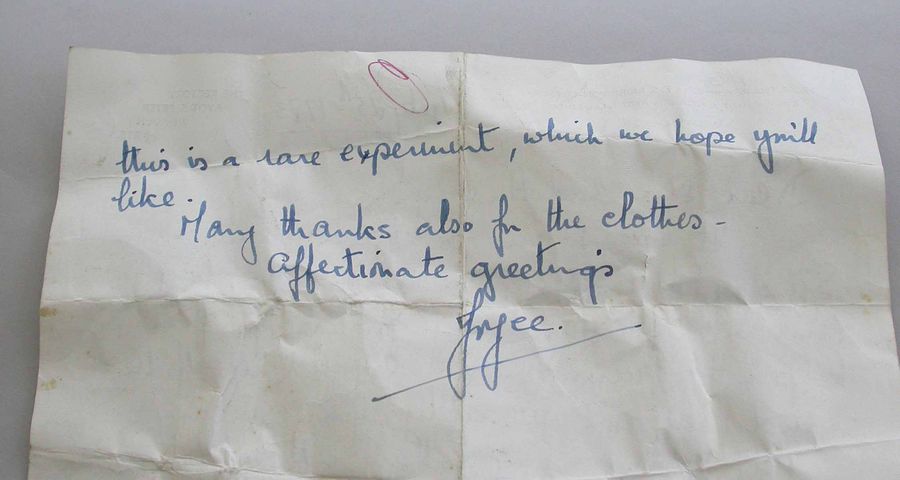 this is a rare experiment, which we hope you'll
like.
Many thanks also for the clothes -
Affectionate greetings
Joyce.